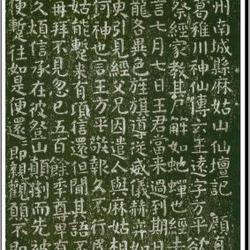 州南城縣麻姑山仙壇記 顏
葛稚川神仙傳云王遠字方平欲
蔡經家教其尸解如虵蟬也經
言七月七日王君當來過到期日
龍各異色旌旗道從威儀赫弈如
臾引見經父兄因遣人與麻姑相
何神也言王方平敬報久不行民
姑能蹔來有頃信還但聞其語不
再拜不見忽已五百餘季尊卑有
久煩信承在彼登山顛倒而先被
便蹔往如是便還還即親觀願不即